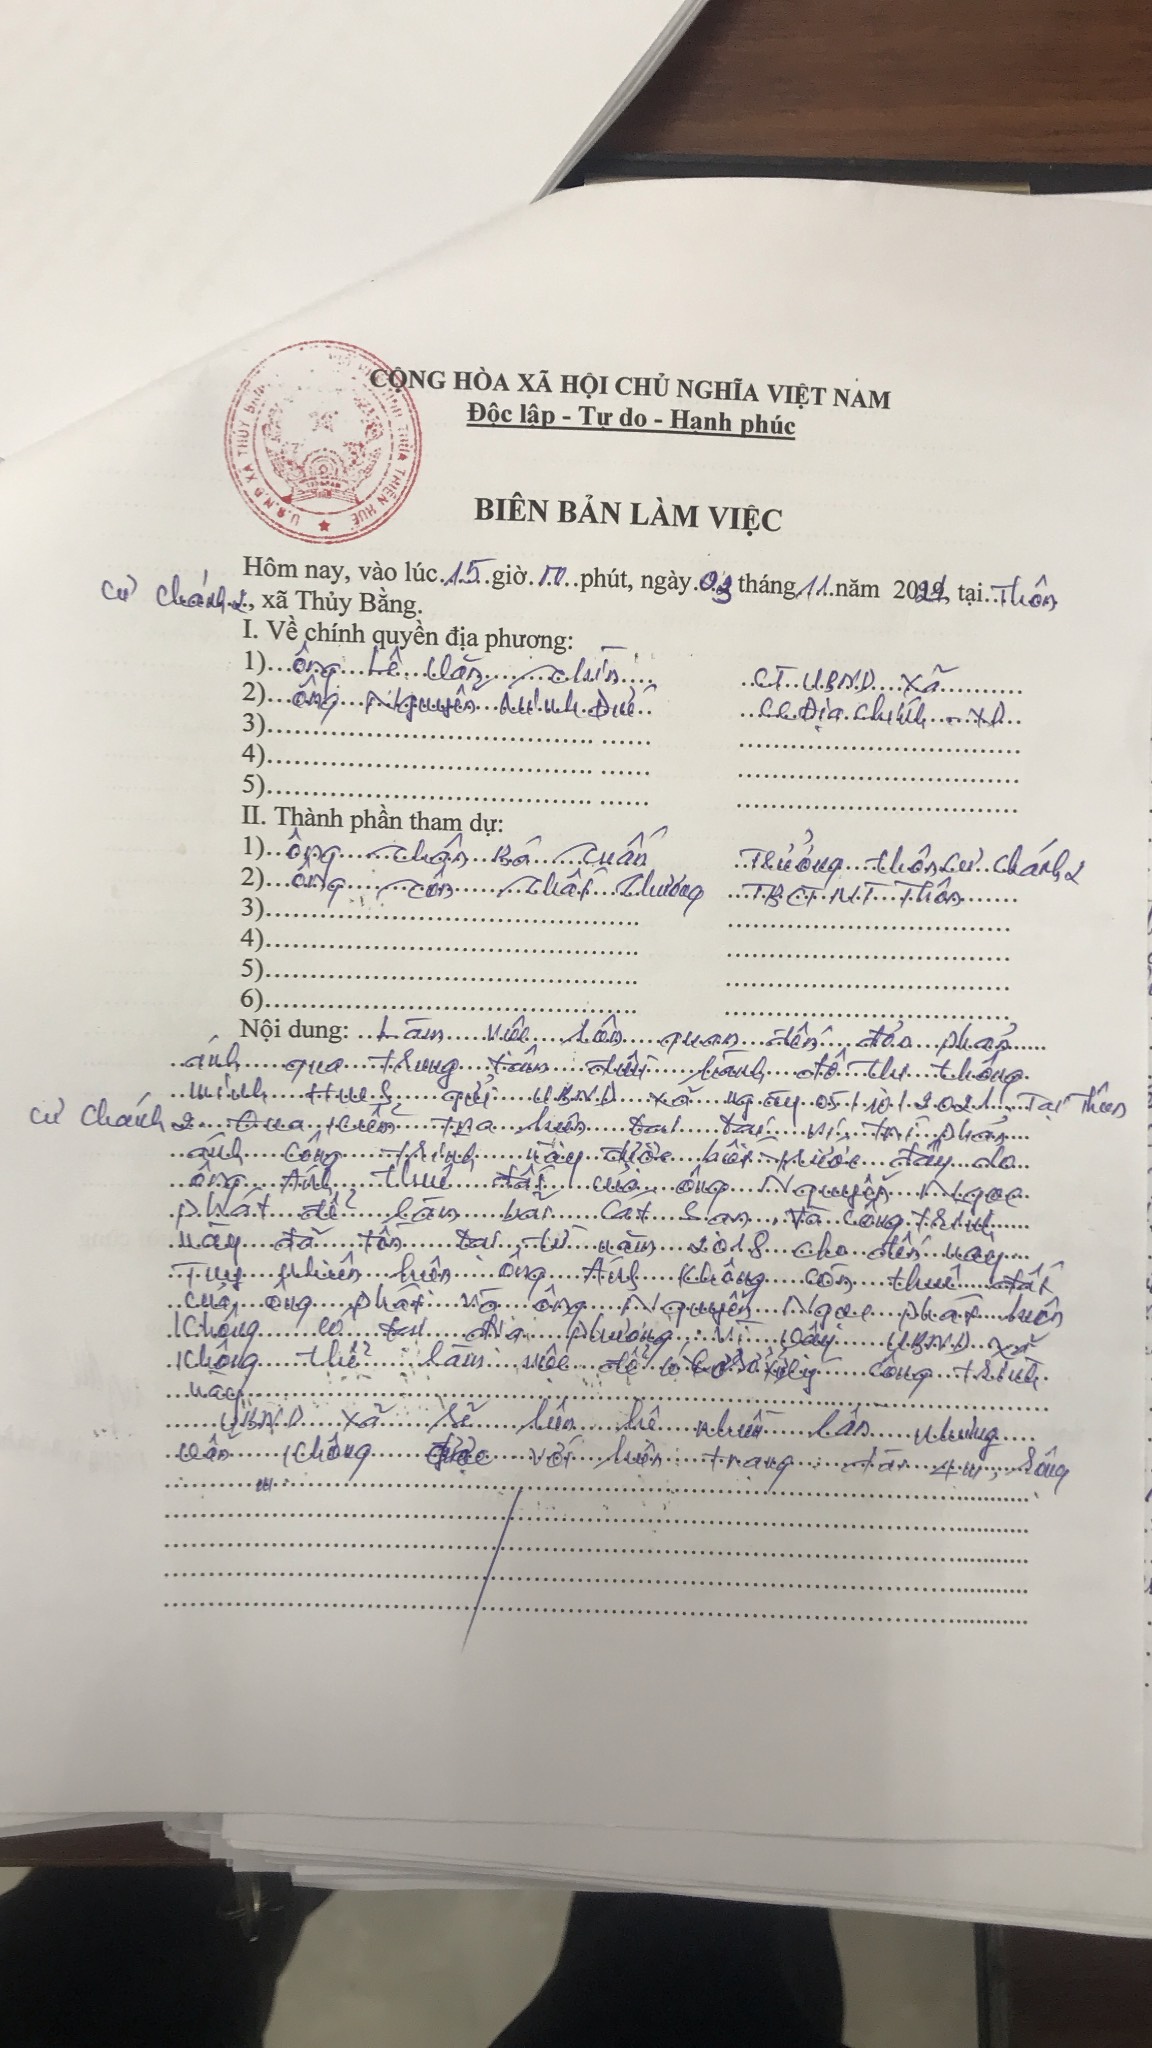 CỘNG HÒA XÃ HỘI CHỦ NGHĨA VIỆT NAM
Độc lập - Tự do - Hạnh phúc
U.B.N.D XÃ THỦY BẰNG THỪA THIÊN HUẾ
BIÊN BẢN LÀM VIỆC
Hôm nay, vào lúc 15 giờ 10 phút, ngày 03 tháng 11 năm 2021, tại Thôn
Cư Chánh 2, xã Thủy Bằng.
I. Về chính quyền địa phương:
1) Ông Lê Văn Chín CT UBND xã
2) Ông Nguyễn Minh CC Địa Chính - XD
3)
4)
5)
II. Thành phần tham dự:
1) Ông Bá Tuấn Trưởng thôn Cư Chánh 2
2) Ông Tôn Thất Thương TBCTMT Thôn
3)
4)
5)
6)
Nội dung: Làm việc liên quan đến đơn phản
ánh qua trung tâm điều hành đô thị thông
minh Hue S gửi UBND xã ngày 05/10/2021 Tại Thôn
Cư Chánh 2. Qua kiểm tra hiện tại tại vị trí phản
ánh công trình này được biết trước đây do
ông Ánh thuê đất của ông Nguyễn Ngọc
Phát để làm bãi cát sạn, và công trình
này đã tồn tại từ năm 2018 cho đến nay
Tuy nhiên hiện ông Ánh không còn thuê đất
của ông Phát và ông Nguyễn Ngọc Phát hiện
không có tại địa phương. Vì vậy UBND xã
không thể làm việc để công trình
này
UBND xã sẽ liên hệ nhiều lần nhưng
vẫn không được với hiện trạng: dài 4m, rộng
m